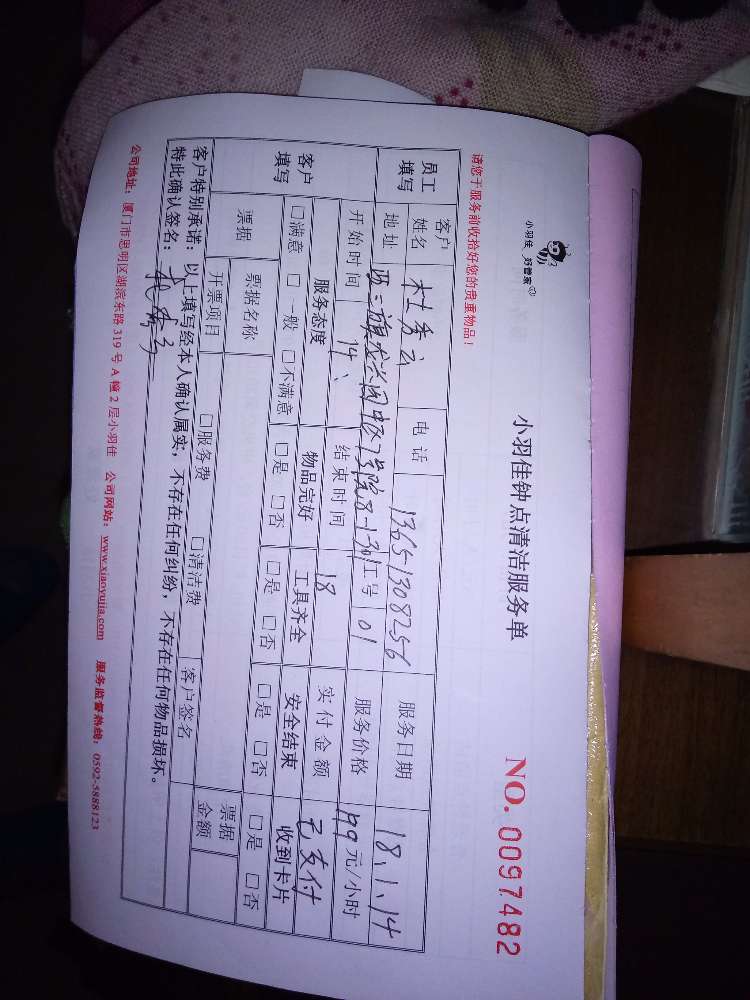 小羽佳 好管家
小羽佳钟点清洁服务单
NO. 0097482
请您于服务前收拾好您的贵重物品！
员工填写 客户姓名 杜秀云 电话 13651308256 服务日期 18.1.14
地址 工号 01 服务价格 元/小时
开始时间 14、 结束时间 18 实付金额 已支付
客户填写 服务态度 物品完好 工具齐全 安全结束 收到卡片
□满意 □一般 □不满意 □是 □否 □是 □否 □是 □否 □是 □否
票据 票据名称 □服务费 □清洁费 客户签名 票据金额
开票项目
客户特别承诺：以上填写经本人确认属实，不存在任何纠纷，不存在任何物品损坏。
特此确认签名：
公司地址：厦门市思明区湖滨东路 319 号 A 幢 2 层小羽佳 公司网站：www.xiaoyujia.com 服务监督热线：0592-5888123